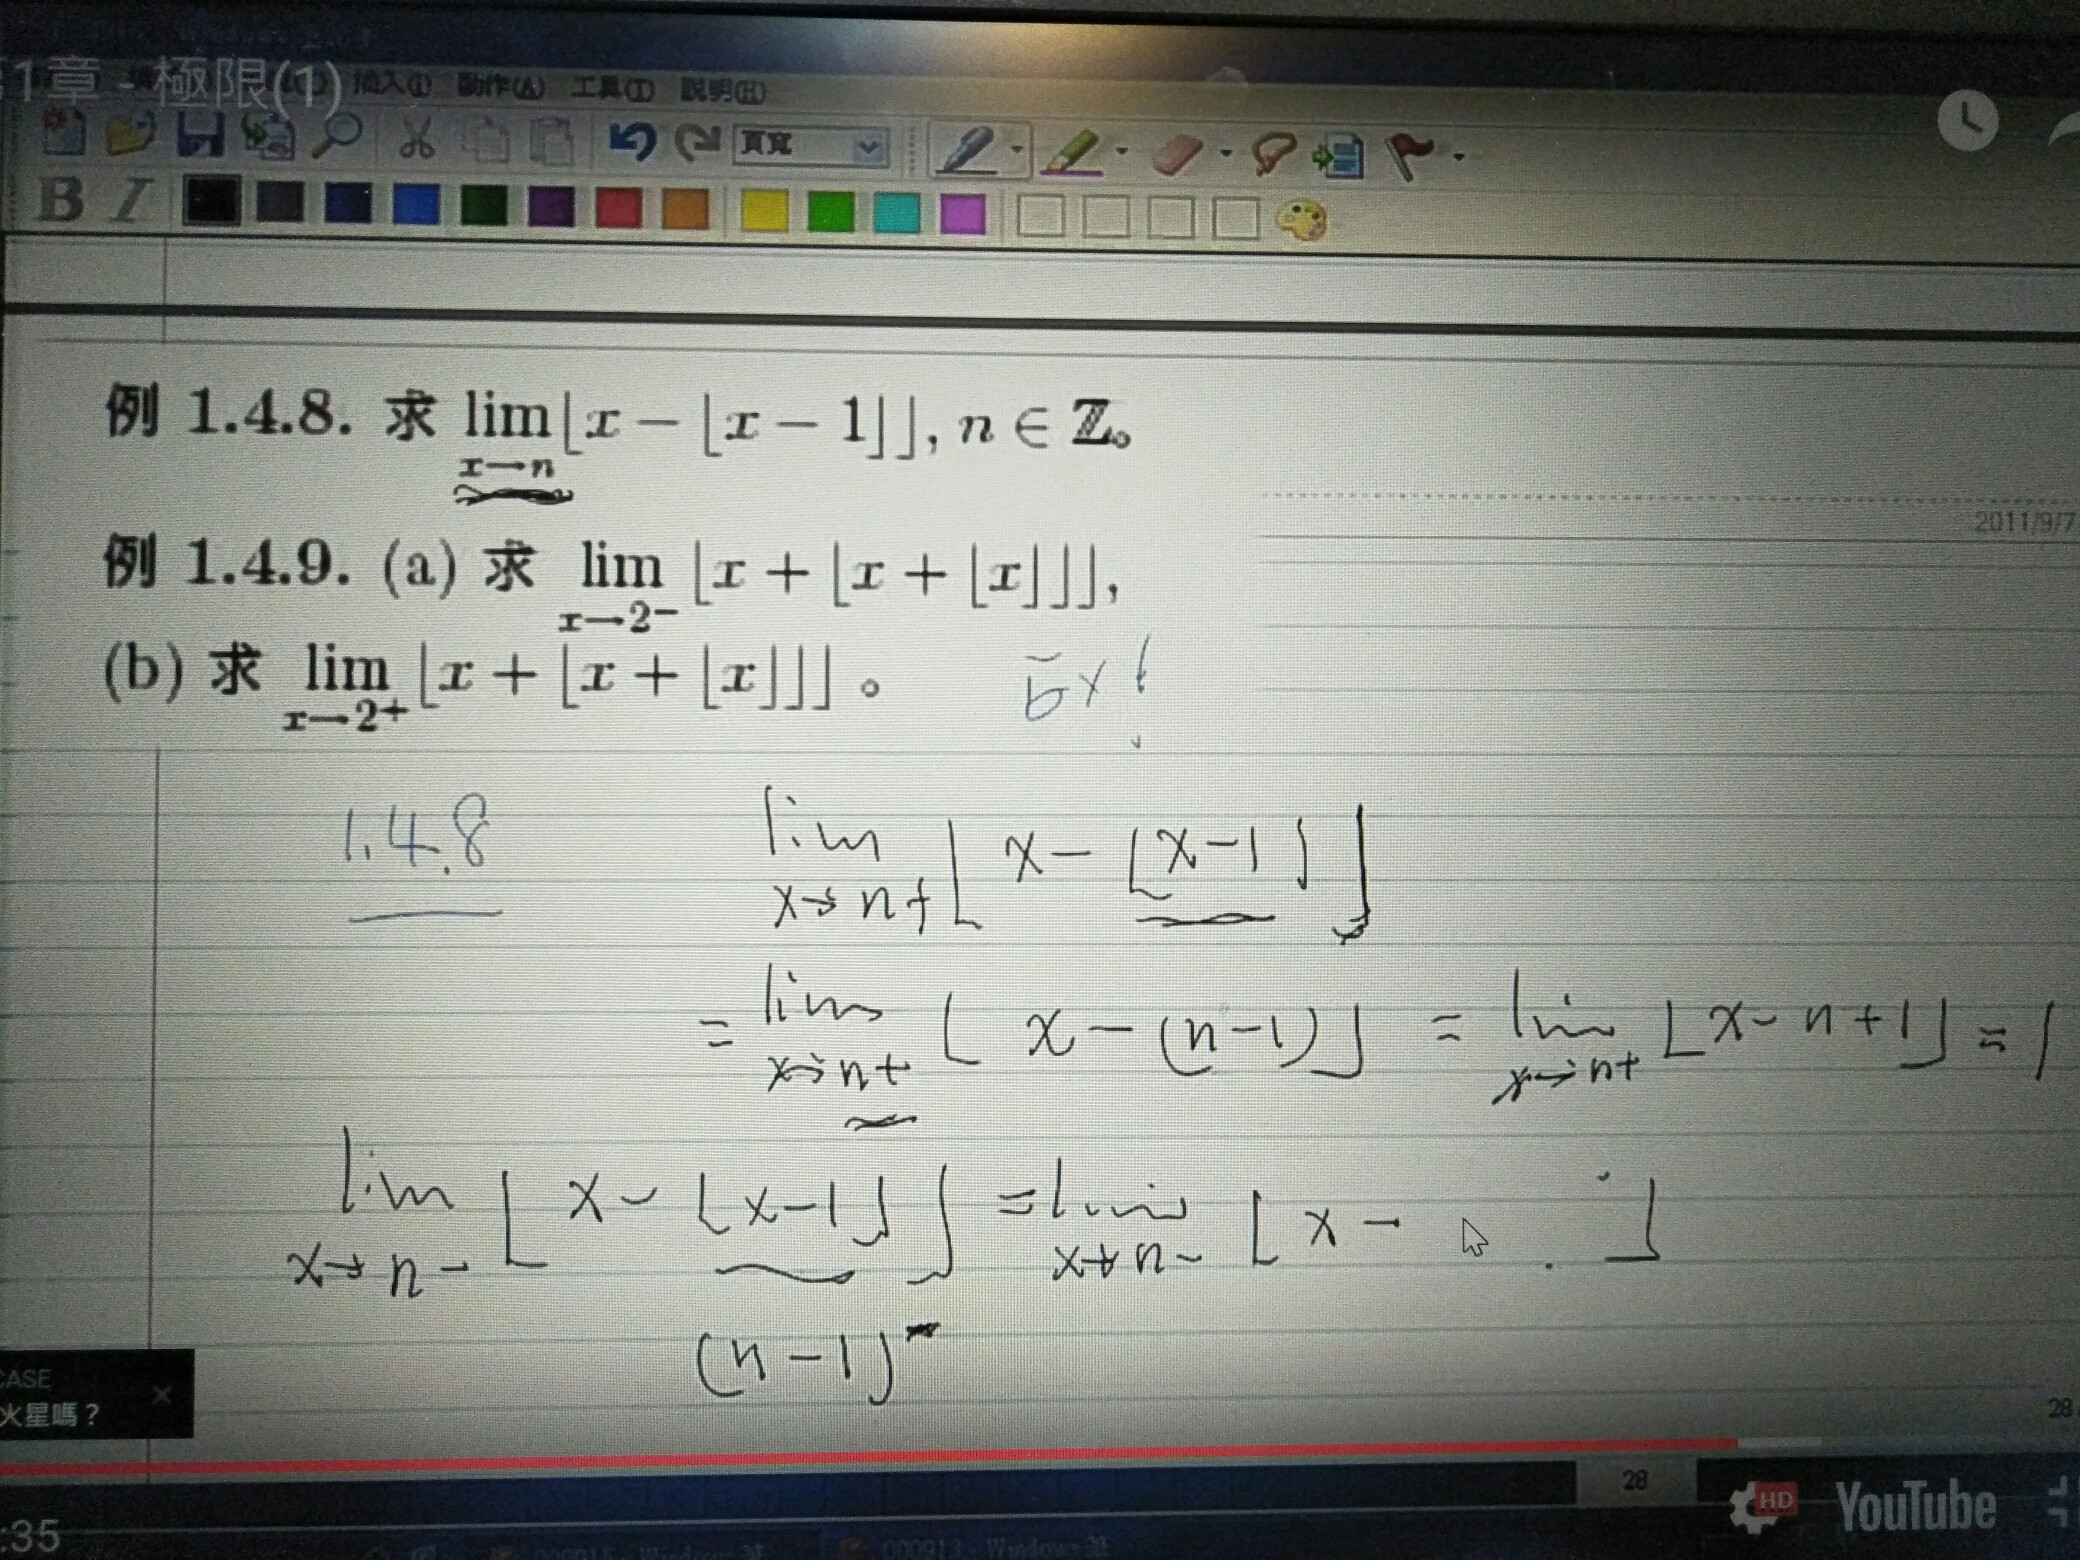 1章 - 極限(1) 插入(I) 動作(A) 工具(T) 説明(H)
頁寬
B I
例 1.4.8. 求 lim x→n ⌊x − ⌊x − 1⌋⌋, n ∈ ℤ。
2011/9/7
例 1.4.9. (a) 求 lim x→2− ⌊x + ⌊x + ⌊x⌋⌋⌋,
(b) 求 lim x→2+ ⌊x + ⌊x + ⌊x⌋⌋⌋。
1.4.8 lim x→n+ ⌊x − ⌊x−1⌋⌋
= lim x→n+ ⌊x − (n−1)⌋ = lim x→n+ ⌊x−n+1⌋ = 1
lim x→n− ⌊x − ⌊x−1⌋⌋ = lim x→n− ⌊x − ⌋
(n−1)⁻
CASE
火星嗎？
28
28
HD YouTube
:35
000913 - Windows